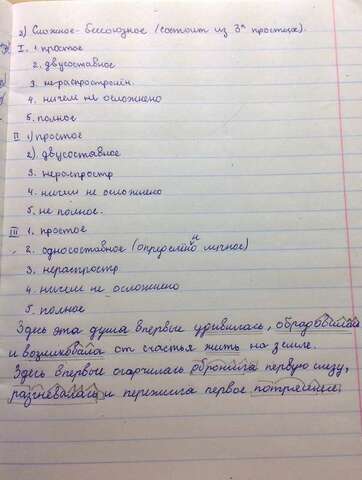 2) Сложное - бессоюзное (состоит из 3ˣ простых).
I. 1. простое
2. двусоставное
3. нераспространён.
4. ничем не осложнено
5. полное
II 1) простое
2). двусоставное
3. нераспростр
4. ничем не осложнено
5. не полное.
III 1. простое
2. односоставное (определённо личное)
3. нераспростр
4. ничем не осложнено
5. полное
Здесь эта душа впервые удивилась, обрадовалась
и возликовала от счастья жить на земле.
Здесь впервые огорчилась обронила первую слезу,
разгневалась и пережила первое потрясение.